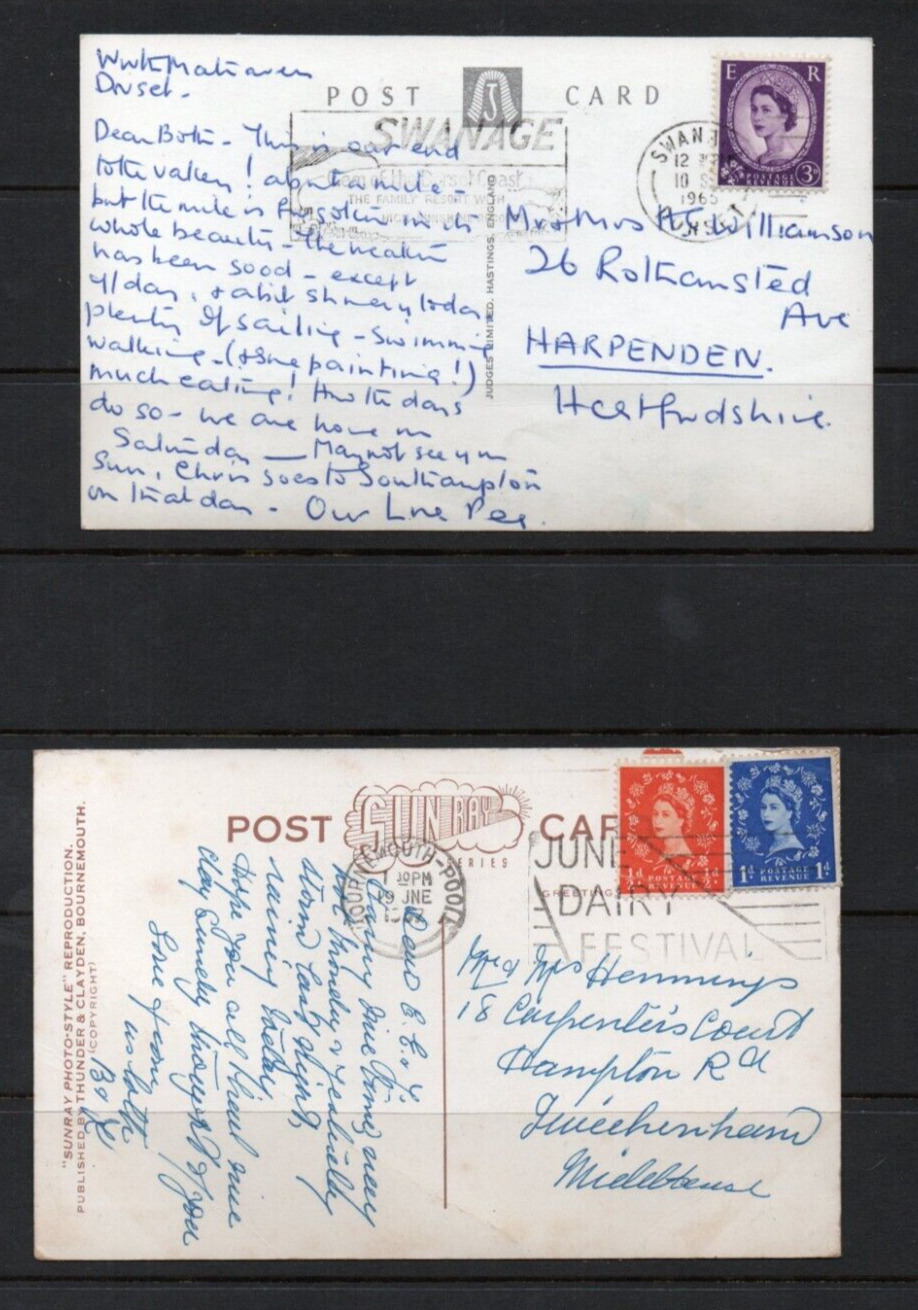 Dorset.
POST CARD
SWANAGE
Gem of the Dorset Coast
THE FAMILY RESORT WITH
E R
3D
POSTAGE
REVENUE
SWAN
12
10 S
1965
DORSET
Dear Both - This is our end
to the valley! about a mile -
but the mile is forgotten in its
whole beauty - The weather
has been good - except
y/day, & a bit showery today
plenty of sailing - swimming
walking - (& some painting!)
much eating! How the days
do so - we are home on
Saturday — May not see you
Sun, Chris goes to Southampton
on that day - Our Love Peg.
JUDGES LIMITED, HASTINGS, ENGLAND
Mr & Mrs A.G. Williamson
26 Rothamsted
Ave
HARPENDEN.
Hertfordshire.
"SUNRAY PHOTO-STYLE" REPRODUCTION.
PUBLISHED BY THUNDER & CLAYDEN, BOURNEMOUTH.
(COPYRIGHT)
POST SUNRAY CAR
SERIES
GREETING
½d POSTAGE REVENUE
1d POSTAGE REVENUE 1d
BOURNEMOUTH-POOLE
1 30PM
19 JNE
JUNE
DAIRY
FESTIVAL
Dear
Having nice time very
hot Monday &
wind last night,
raining today
Hope you all had nice
day Sunday thought of you
Love from
us both
Mr & Mrs Hemmings
18 Carpenters Court
Hampton Rd
Twickenham
Middlesex